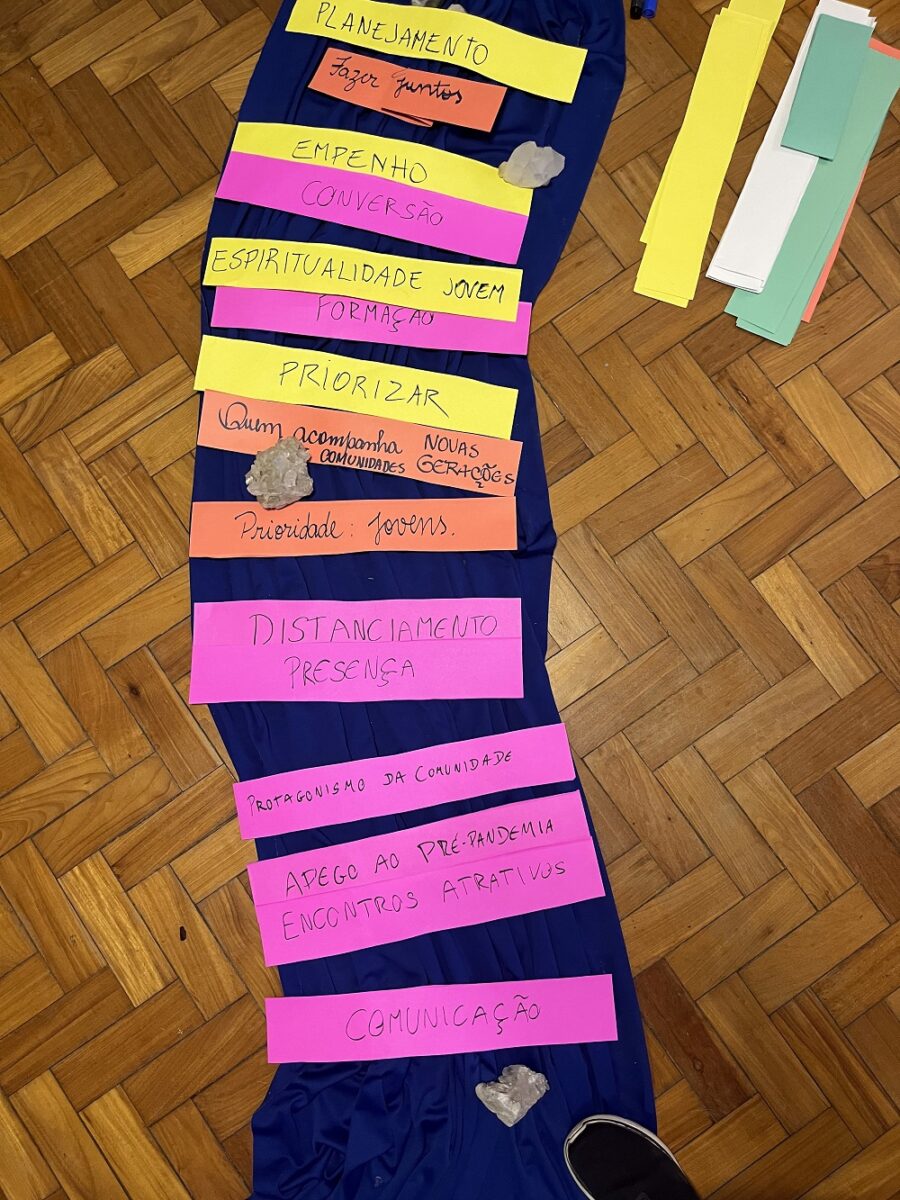 PLANEJAMENTO
Fazer juntos
EMPENHO
CONVERSÃO
ESPIRITUALIDADE JOVEM
FORMAÇÃO
PRIORIZAR
Quem acompanha NOVAS
COMUNIDADES GERAÇÕES
Prioridade: jovens.
DISTANCIAMENTO
PRESENÇA
PROTAGONISMO DA COMUNIDADE
APEGO AO PRÉ-PANDEMIA
ENCONTROS ATRATIVOS
COMUNICAÇÃO